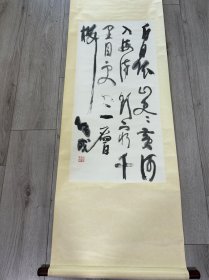 白日依山尽黄河
入海流欲穷千
里目更上一層
樓